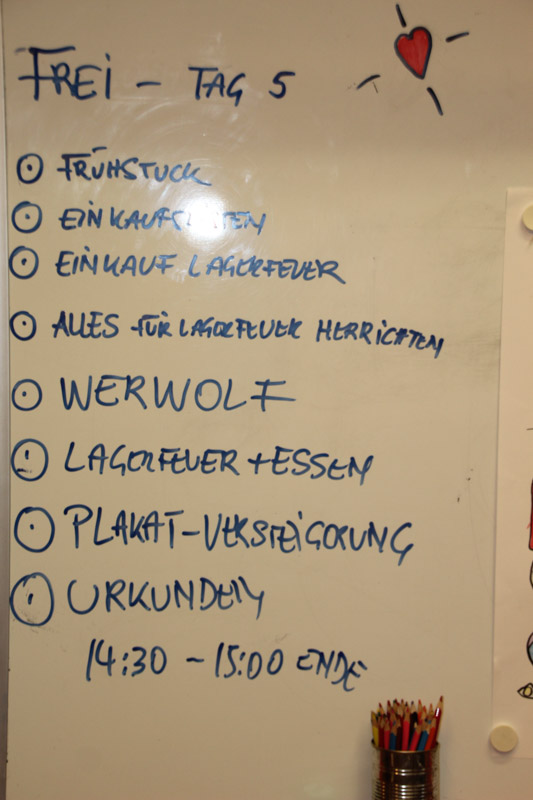 FREI - TAG 5
FRÜHSTUCK
EINKAUFSLISTEN
EINKAUF LAGERFEUER
ALLES FÜR LAGERFEUER HERRICHTEN
WERWOLF
LAGERFEUER + ESSEN
PLAKAT-VERSTEIGERUNG
URKUNDEN
14:30 - 15:00 ENDE